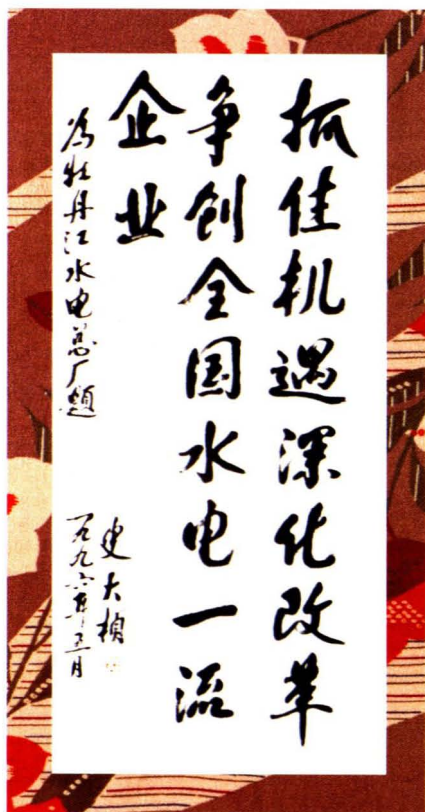 抓佳机遇深化改革
争创全国水电一流
企业
为牡丹江水电总厂题
史大桢
一九九六年三月